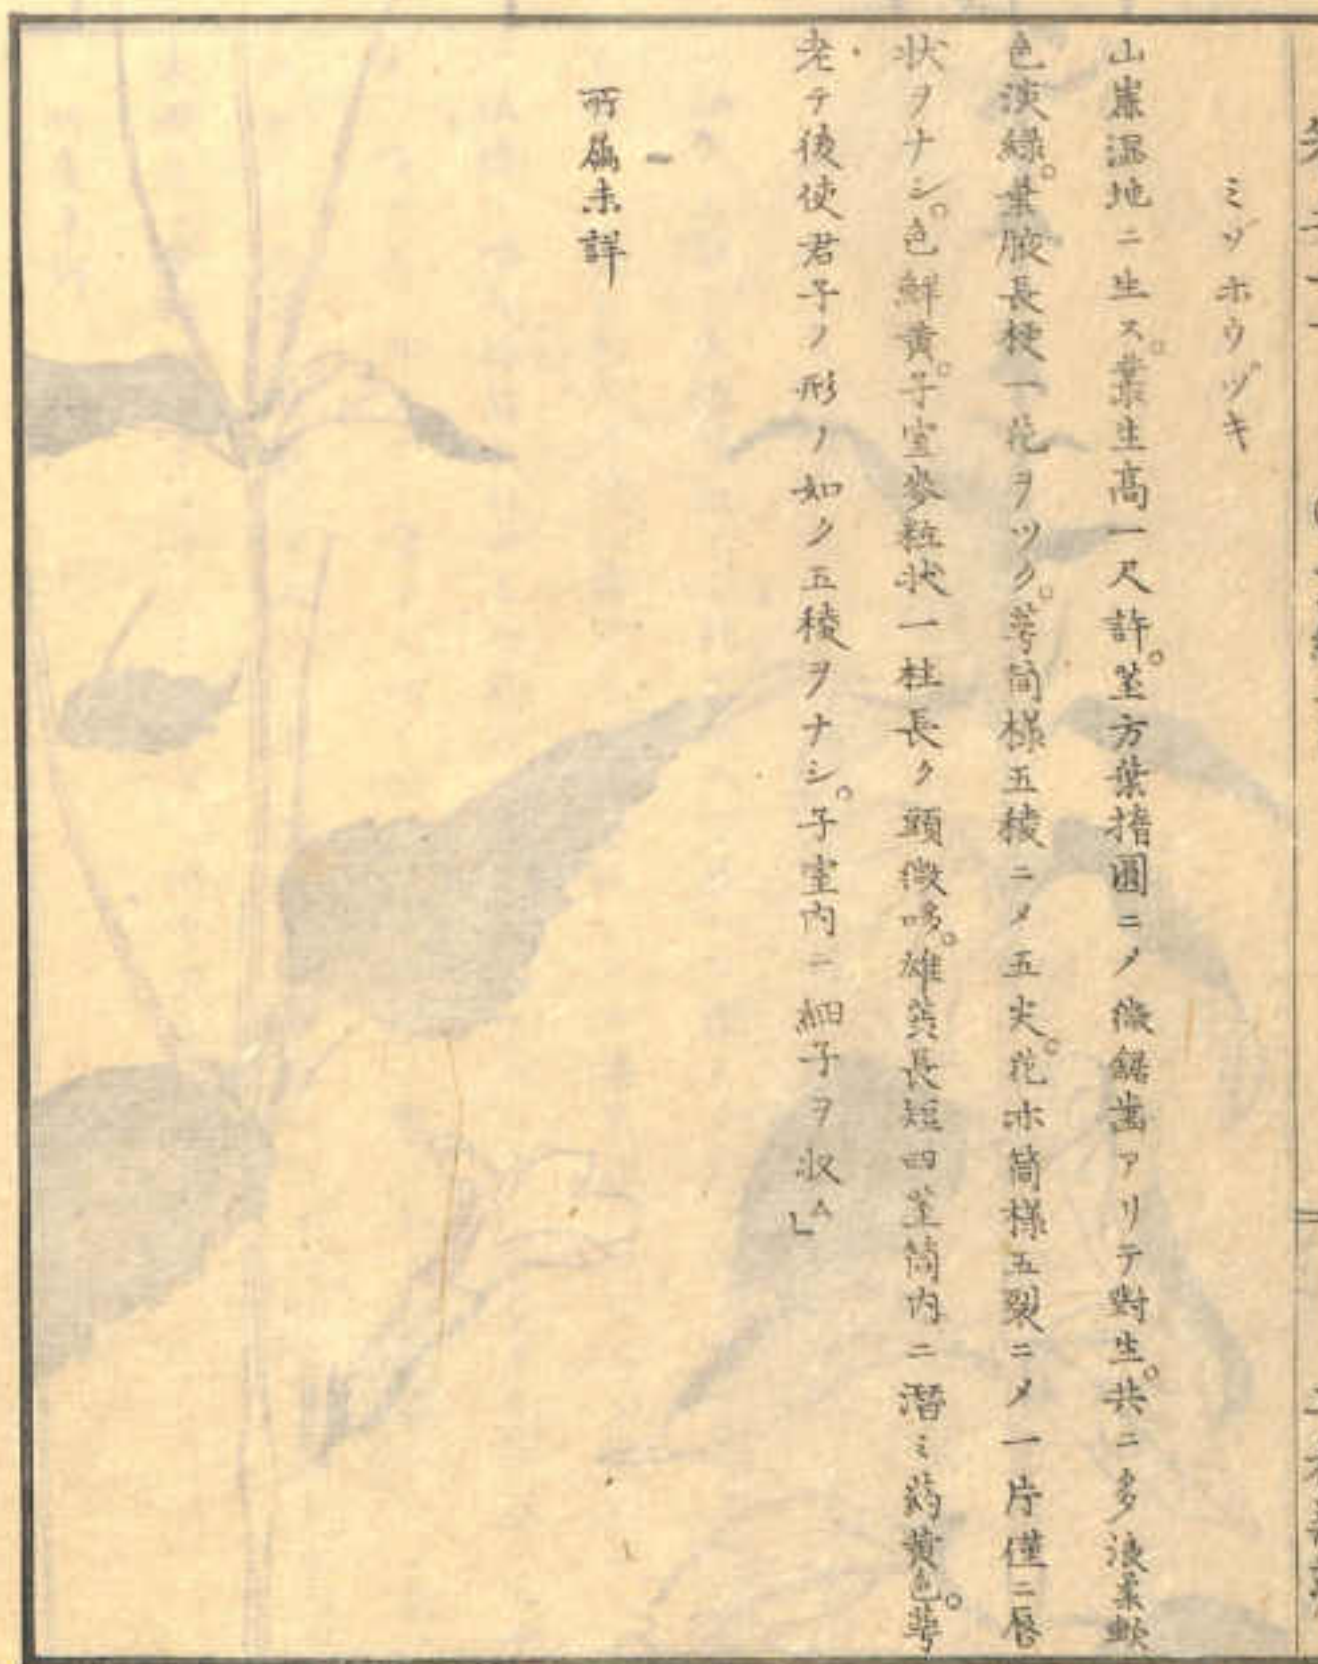 ミゾホウヅキ
山崖濕地ニ生ス。叢生高一尺許。莖方葉撱圓ニメ微鋸齒アリテ對生。共ニ多液柔軟
色淡緑。葉腋長梗一花ヲツク。萼筒様五稜ニメ五尖。花亦筒様五裂ニメ一片僅ニ唇
状ヲナシ。色鮮黄。子室麥粒状一柱長ク頭微哆。雄蕊長短四莖筒内ニ潜ミ葯黄色。萼
老テ後使君子ノ形ノ如ク五稜ヲナシ。子室内ニ細子ヲ収ム」
所属未詳